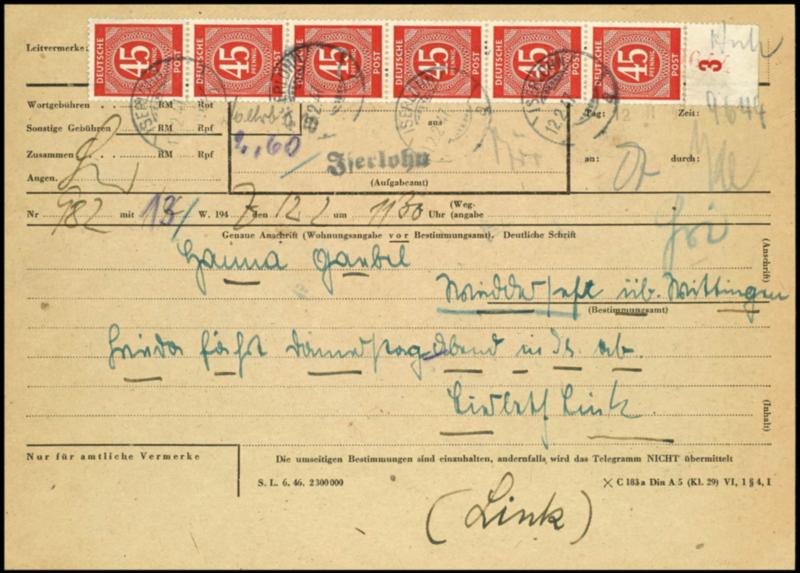 Leitvermerke:
45 DEUTSCHE PFENNIG POST 45 DEUTSCHE PFENNIG POST 45 DEUTSCHE PFENNIG POST 45 DEUTSCHE PFENNIG POST 45 DEUTSCHE PFENNIG POST 45 DEUTSCHE PFENNIG POST 3
ISERLOHN 12.2.47
Wortgebühren RM Rpf
aus Tag: 12 Zeit: 9644
Sonstige Gebühren RM Rpf
Zusammen RM Rpf 2,60 an: durch:
Iserlohn
Augen. (Aufgabeamt)
Nr 982 mit 13/ W. 194 7 den 12 2 um 1130 Uhr (Weg-angabe
Genaue Anschrift (Wohnungsangabe vor Bestimmungsamt). Deutsche Schrift
(Anschrift)
Hanna Gaubel
üb. Wittingen
(Bestimmungsamt)
Frieda fährt Dienstag abend in Is. ab.
Link
(Inhalt)
Nur für amtliche Vermerke
Die umseitigen Bestimmungen sind einzuhalten, andernfalls wird das Telegramm NICHT übermittelt
S. L. 6. 46. 2 300 000
× C 183 a Din A 5 (Kl. 29) VI, 1 § 4, I
(Link)